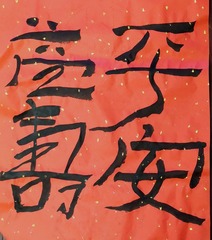 平安
益壽